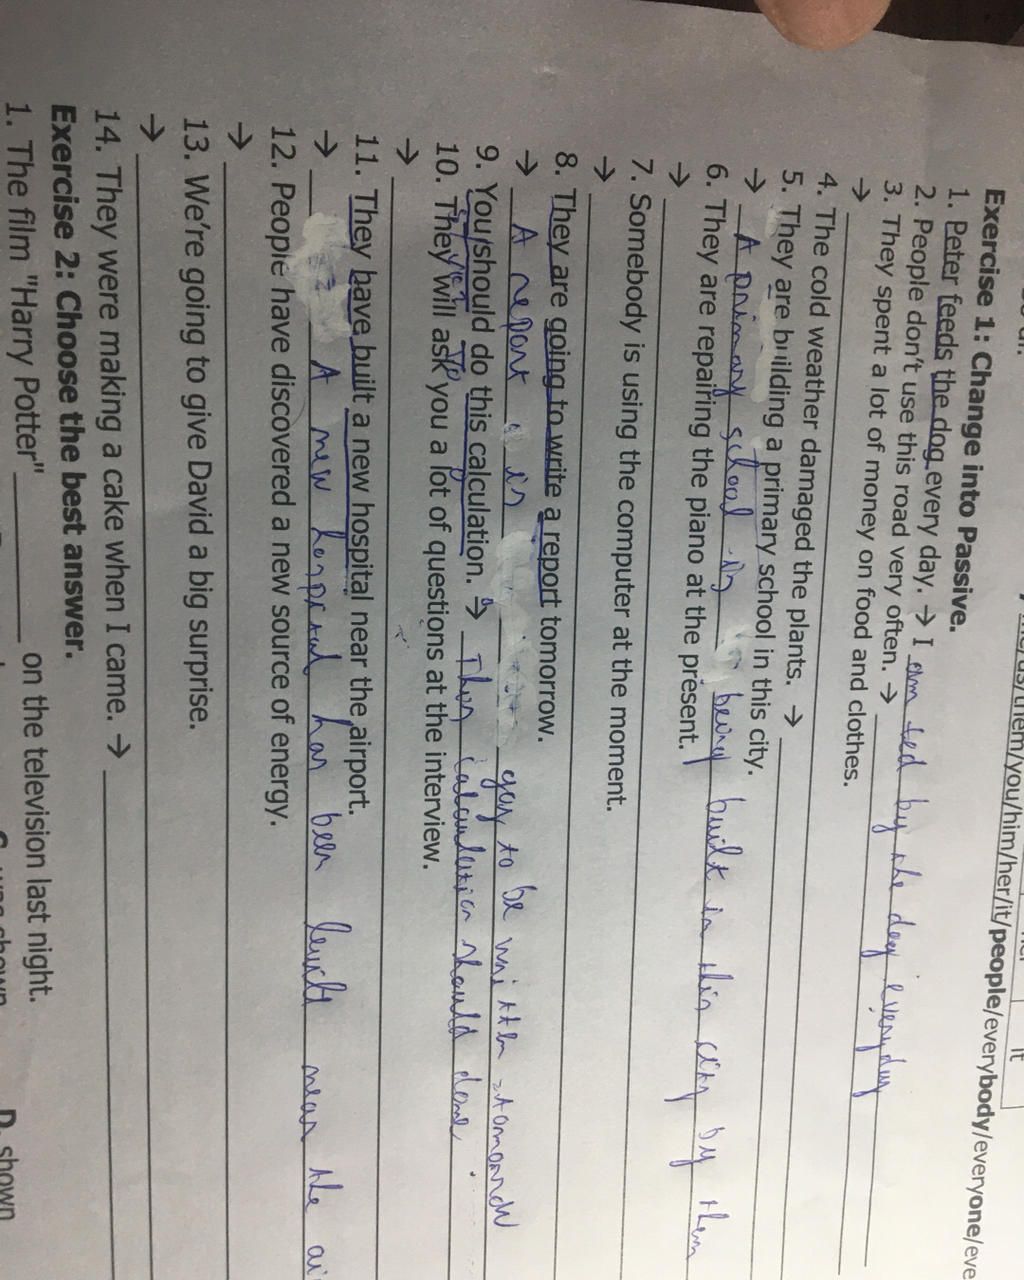 /me/us/them/you/him/her/it/people/everybody/everyone/eve
it
Exercise 1: Change into Passive.
1. Peter feeds the dog every day. → I am fed by the dog everyday
2. People don't use this road very often. →
3. They spent a lot of money on food and clothes.
→
4. The cold weather damaged the plants. →
5. They are building a primary school in this city.
→ A primary school is being built in this city by them
6. They are repairing the piano at the present.
→
7. Somebody is using the computer at the moment.
→
8. They are going to write a report tomorrow.
→ A report is to be written
9. You should do this calculation. → This calculation should done
10. They will ask you a lot of questions at the interview.
→
11. They have built a new hospital near the airport.
→ A new hospital has been built near the ai
12. People have discovered a new source of energy.
→
13. We're going to give David a big surprise.
→
14. They were making a cake when I came. →
Exercise 2: Choose the best answer.
1. The film "Harry Potter" on the television last night.
D. shown